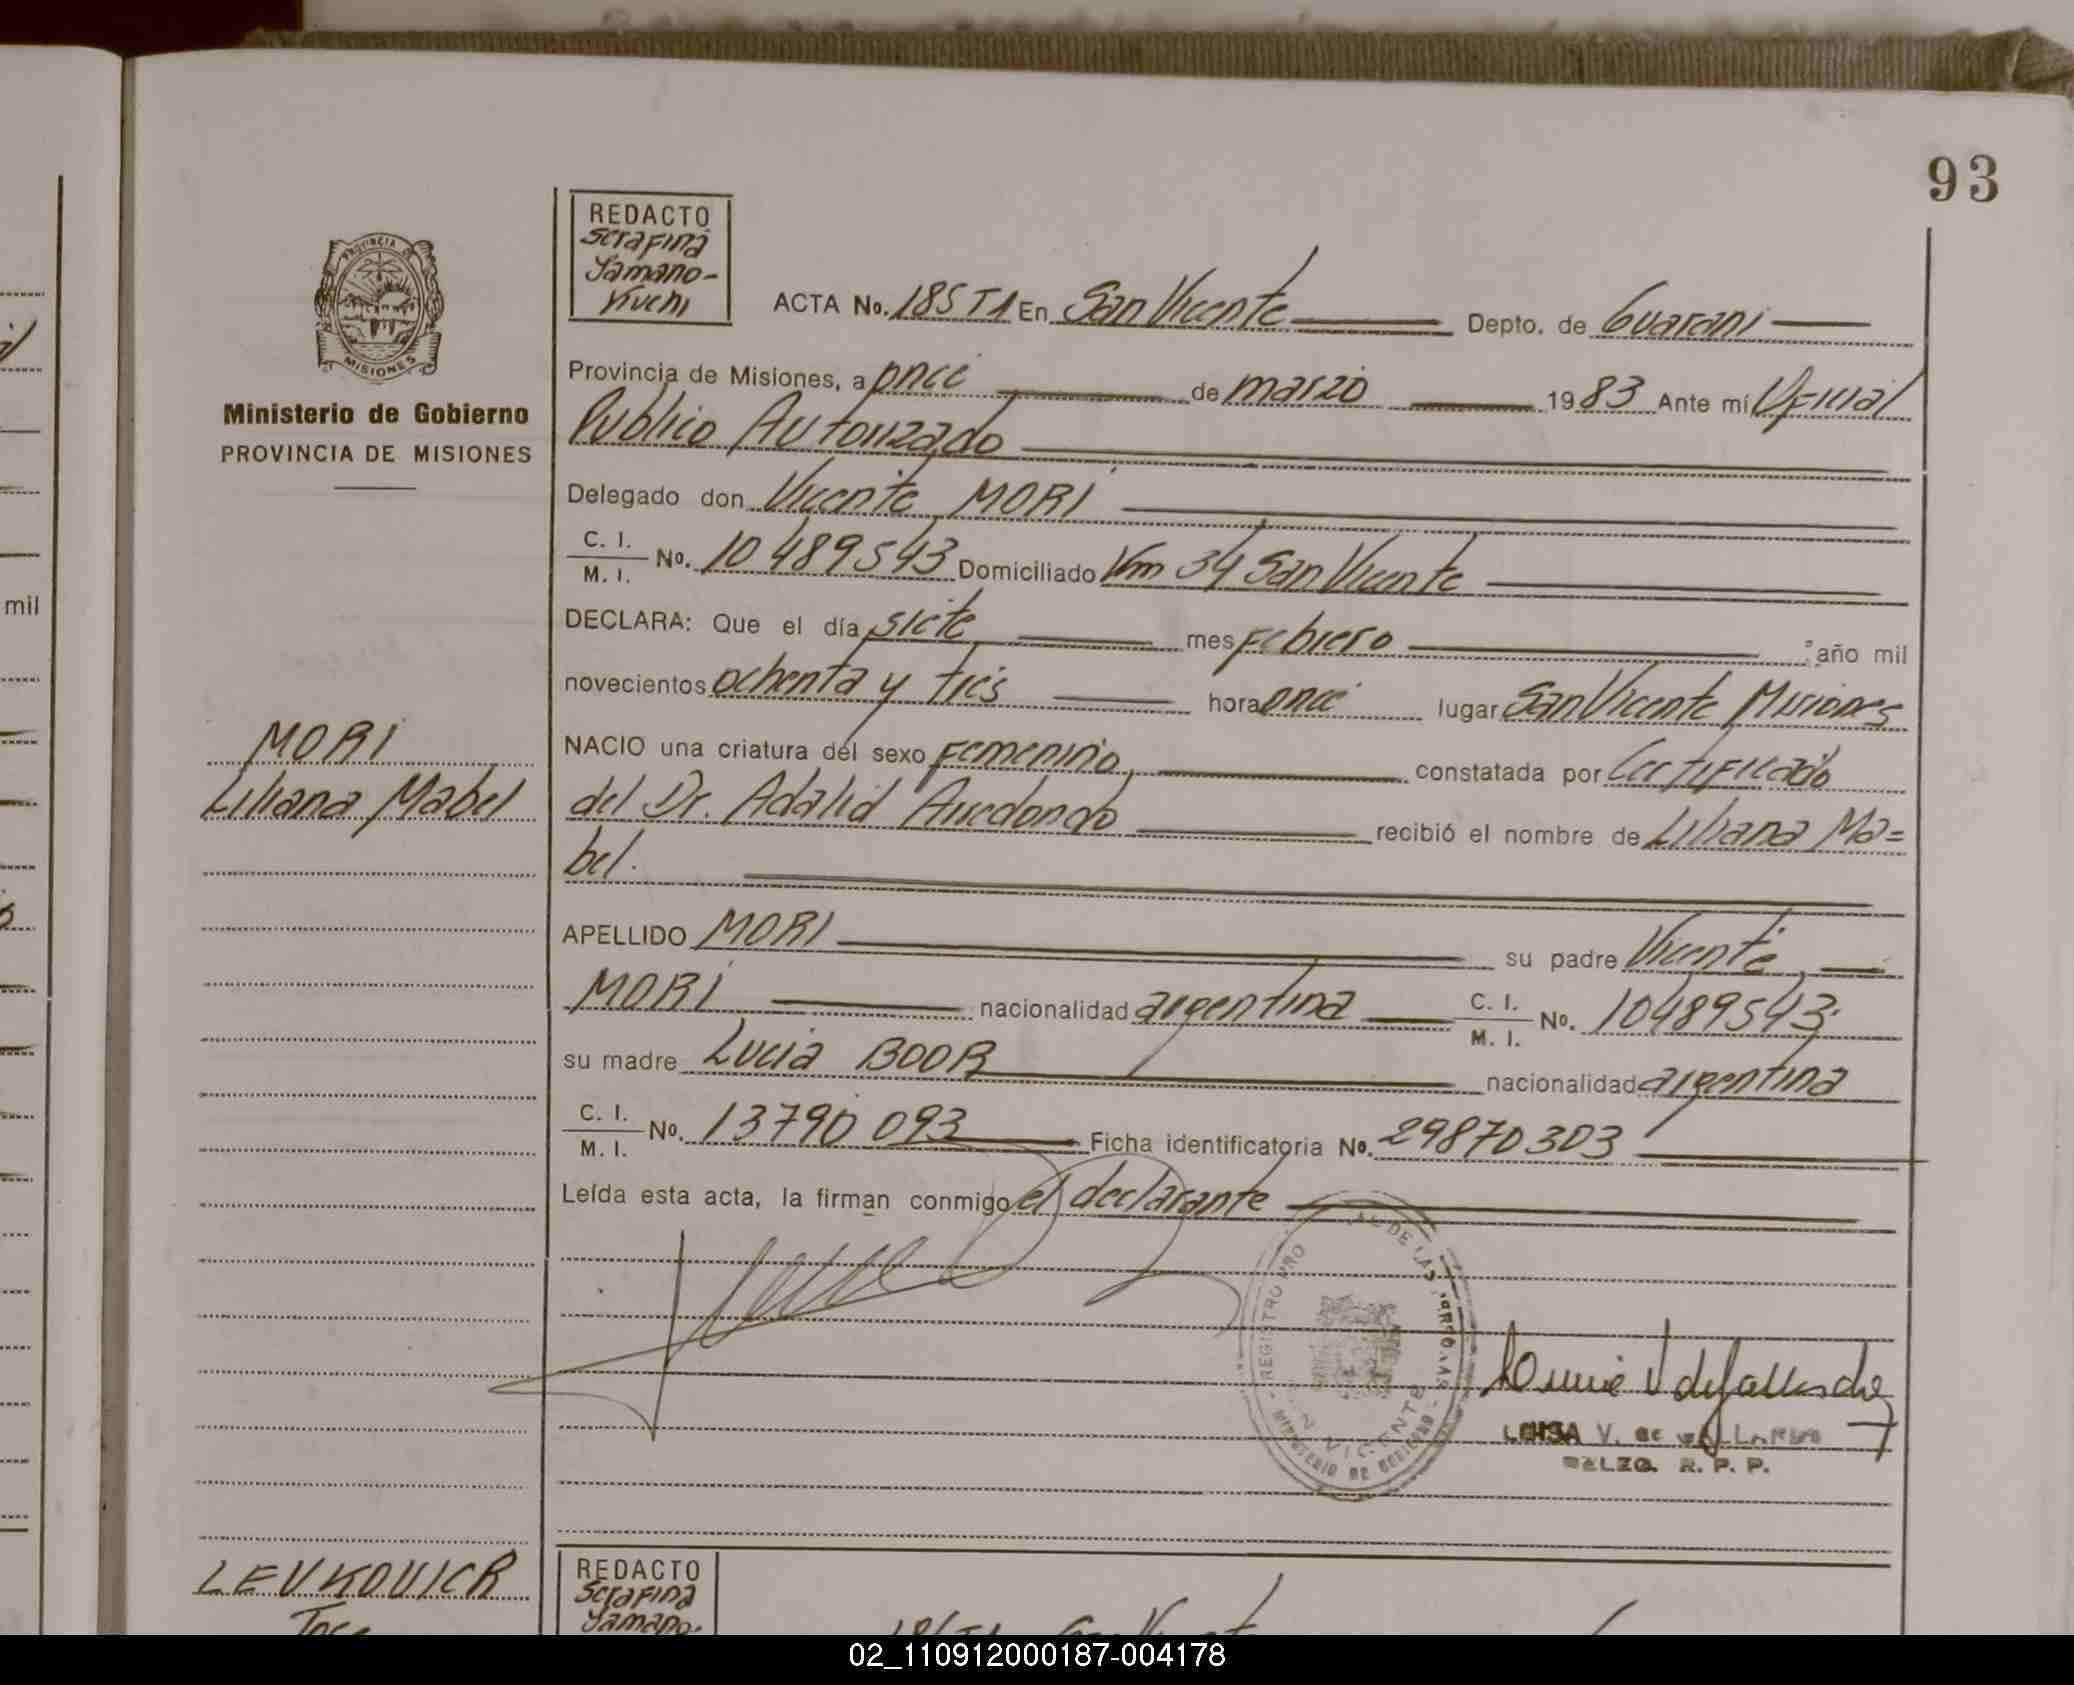 93
REDACTO
Serafina
Yamano-
Kiuchi
ACTA No. 185 T1 En San Vicente Depto. de Guaraní
Provincia de Misiones, a once de marzo 1983 Ante mí Oficial
Ministerio de Gobierno
PROVINCIA DE MISIONES
MISIONES
Público Autorizado
Delegado don Vicente MORI
C. I. / M. I. No. 10489543 Domiciliado Km 34 San Vicente
DECLARA: Que el día siete mes Febrero año mil
novecientos ochenta y tres hora once lugar San Vicente Misiones
MORI
NACIO una criatura del sexo Femenino, constatada por Certificado
Liliana Mabel
del Dr. Adalid Arredondo recibió el nombre de Liliana Ma=
bel.
APELLIDO MORI su padre Vicente
MORI nacionalidad argentina C. I. / M. I. No. 10489543;
su madre Lucia BOOR nacionalidad argentina
C. I. / M. I. No. 13790 093 Ficha identificatoria No. 29870303
Leída esta acta, la firman conmigo el declarante
REGISTRO DE LAS
SAN VICENTE
MINISTERIO DE GOBIERNO
LUISA V. DE GALLARDO
R. P. P.
LEUKOVICR
REDACTO
Serafina
Yamano-
mil
02_110912000187-004178